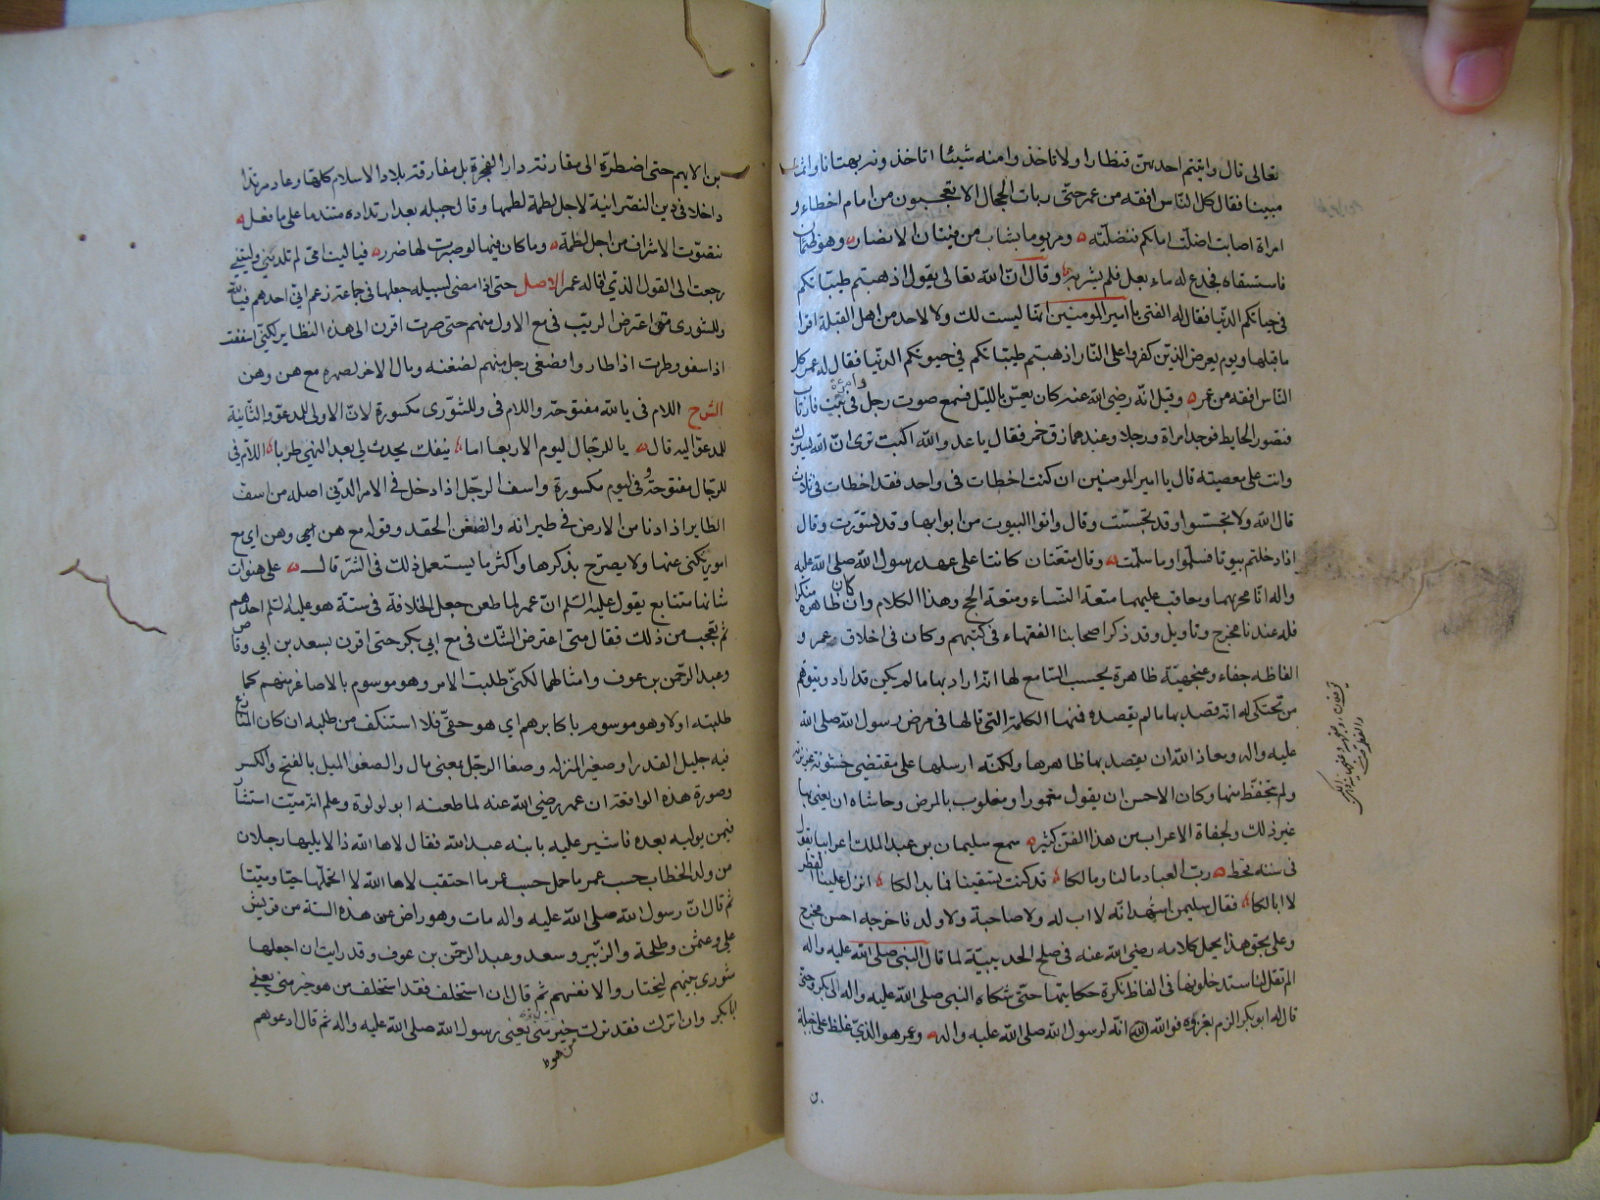 تعالى قال واتيتم احديهن قنطارا ولا تاخذوا منه شيئا اتاخذونه بهتانا واثما
مبينا فقال كل الناس افقه من عمر حتى ربات الحجال الا تعجبون من امام اخطاء و
امراة اصابت اضلت امامكم فنضلته ومر يوما بشاب من فتيان الانصار وهو ظمان
فاستسقاه فجدح له ماء بعسل فلم يشربه وقال ان الله تعالى يقول اذهبتم طيباتكم
في حياتكم الدنيا فقال له الفتى يا امير المومنين انها ليست لك ولا لاحد من اهل القبلة اقرا
ما قبلها ويوم يعرض الذين كفروا على النار اذهبتم طيباتكم في حيوتكم الدنيا فقال له عمر كل
الناس افقه من عمر وقيل انه رضي الله عنه كان يعس بالليل فسمع صوت رجل وامرءة في بيت فارتاب
فتصور الحايط فوجد امراة ورجلا وعندهما زق خمر فقال يا عدو الله اكنت ترى ان الله يسترك
وانت على معصيته قال يا امير المومنين ان كنت اخطات في واحد فقد اخطات في ثلاث
قال الله ولا تجسسوا وقد تجسست وقال واتوا البيوت من ابوابها وقد تسورت وقال
اذا دخلتم بيوتا فسلموا وما سلمت وقال متعتان كانتا على عهد رسول الله صلى الله عليه
واله انا محرمهما ومعاقب عليهما متعة النساء ومتعة الحج وهذا الكلام وان كان ظاهره منكرا
فله عندنا مخرج وتاويل وقد ذكر اصحابنا الفقهاء في كتبهم وكان في اخلاق عمر و
الفاظه جفاء وعنجهية ظاهرة يحسب السامع لها انه اراد بها ما لم يكن قد اراد ويتوهم
من تحكى له انه قصد بها ما لم يقصده فمنها الكلمة التي قالها في مرض رسول الله صلى الله
عليه واله ومعاذ الله ان يقصد بها ظاهرها ولكنه ارسلها على مقتضى خشونة غريزته
ولم يتحفظ منها وكان الاحسن ان يقول مغمور او مغلوب بالمرض وحاشاه ان يعنى بها
غير ذلك ولجفاة الاعراب من هذا الفن كثير سمع سليمان بن عبد الملك اعرابيا يقول
في سنة قحط رب العباد ما لنا وما لكا قد كنت تسقينا فما بدا لكا انزل علينا القطر
لا ابا لكا فقال سليمن اشهد انه لا اب له ولا صاحبة ولا ولد فاخرجه احسن مخرج
وعلى نحو هذا يحمل كلامه رضي الله عنه في صلح الحديبية لما قال النبي صلى الله عليه واله
الم تقل لنا ستدخلونها في الفاظ نكرة حكايتها حتى شكاه النبي صلى الله عليه واله الى ابى بكر وحتى
قال له ابو بكر الزم بغرزه فوالله انه لرسول الله صلى الله عليه واله وعمر هو الذي غلظ على جبلة
بن الايهم حتى اضطره الى مفارقة دار الهجرة بل مفارقة بلاد الاسلام كلها وعاد مرتدا
داخلا في دين النصرانية لاجل لطمة لطمها وقال جبله بعد ارتداده متندما على ما فعل
تنصرت الاشراف من اجل لطمة وما كان فيها لو صبرت لها ضرر فيا ليت امي لم تلدني وليتني
رجعت الى القول الذي قاله عمر الاصل حتى اذا مضى لسبيله جعلها في جماعة زعم اني احدهم فيا لله
وللشورى متى اعترض الريب في مع الاول منهم حتى صرت اقرن الى هذه النظاير لكنى اسففت
اذا سفوا وطرت اذا طاروا فصغى رجل منهم لضغنه ومال الاخر لصهره مع هن وهن
الشرح اللام في يا لله مفتوحة واللام في وللشورى مكسورة لان الاولى للمدعو والثانية
للمدعو اليه قال يا للرجال ليوم الاربعا اما ينفك يحدث لي بعد النهى طربا اللام في
للرجال مفتوحة وفي ليوم مكسورة واسف الرجل اذا دخل في الامر الدني اصله من اسف
الطاير اذا دنا من الارض في طيرانه والضغن الحقد وقوله مع هن وهن اي مع
امور يكنى عنها ولا يصرح بذكرها واكثر ما يستعمل ذلك في الشر قال على هنوات
شانها متتابع يقول عليه السلم ان عمر لما طعن جعل الخلافة في ستة هو عليه السلم احدهم
ثم تعجب من ذلك فقال متى اعترض الشك في مع ابي بكر حتى اقرن بسعد بن ابي وقاص
وعبد الرحمن بن عوف وامثالهما لكنى طلبت الامر وهو موسوم بالاصاغر منهم كما
طلبته اولا وهو موسوم باكابرهم اي هو حقي فلا استنكف من طلبه ان كان المنازع
فيه جليل القدر او صغير المنزله وصغا الرجل بمعنى مال والصغو الميل بالفتح والكسر
وصورة هذه الواقعة ان عمر رضي الله عنه لما طعنه ابو لولوة وعلم انه ميت استشار
فيمن يوليه بعده فاشير عليه بابنه عبد الله فقال لاها الله ذا لا يليها رجلان
من ولد الخطاب حسب عمر ما حمل حسب عمر ما احتقب لاها الله لا اتحملها حيا وميتا
ثم قال ان رسول الله صلى الله عليه واله مات وهو راض عن هذه الستة من قريش
علي وعثمن وطلحة والزبير وسعد وعبد الرحمن بن عوف وقد رايت ان اجعلها
شورى بينهم ليختاروا لانفسهم ثم قال ان استخلف فقد استخلف من هو خير مني يعنى
ابا بكر وان اترك فقد ترك من هو خير مني يعنى رسول الله صلى الله عليه واله ثم قال ادعوهم